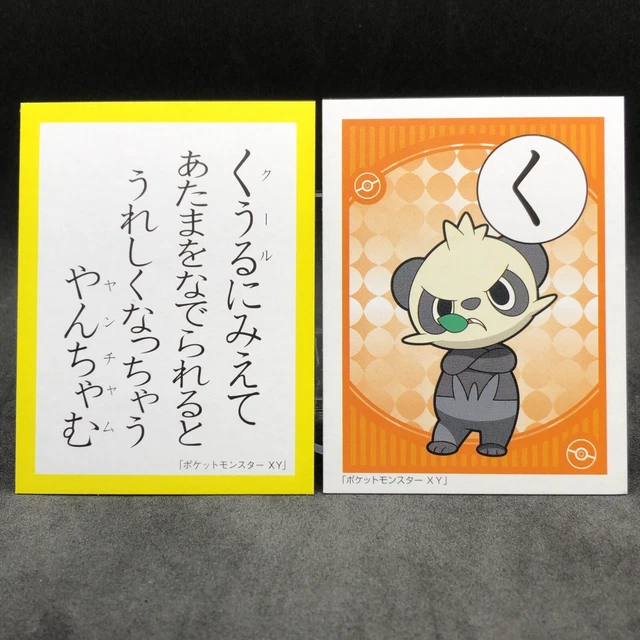 くうるにみえて
クール
あたまをなでられると
うれしくなっちゃう
やんちゃむ
ヤンチャム
「ポケットモンスター XY」
く
「ポケットモンスター XY」